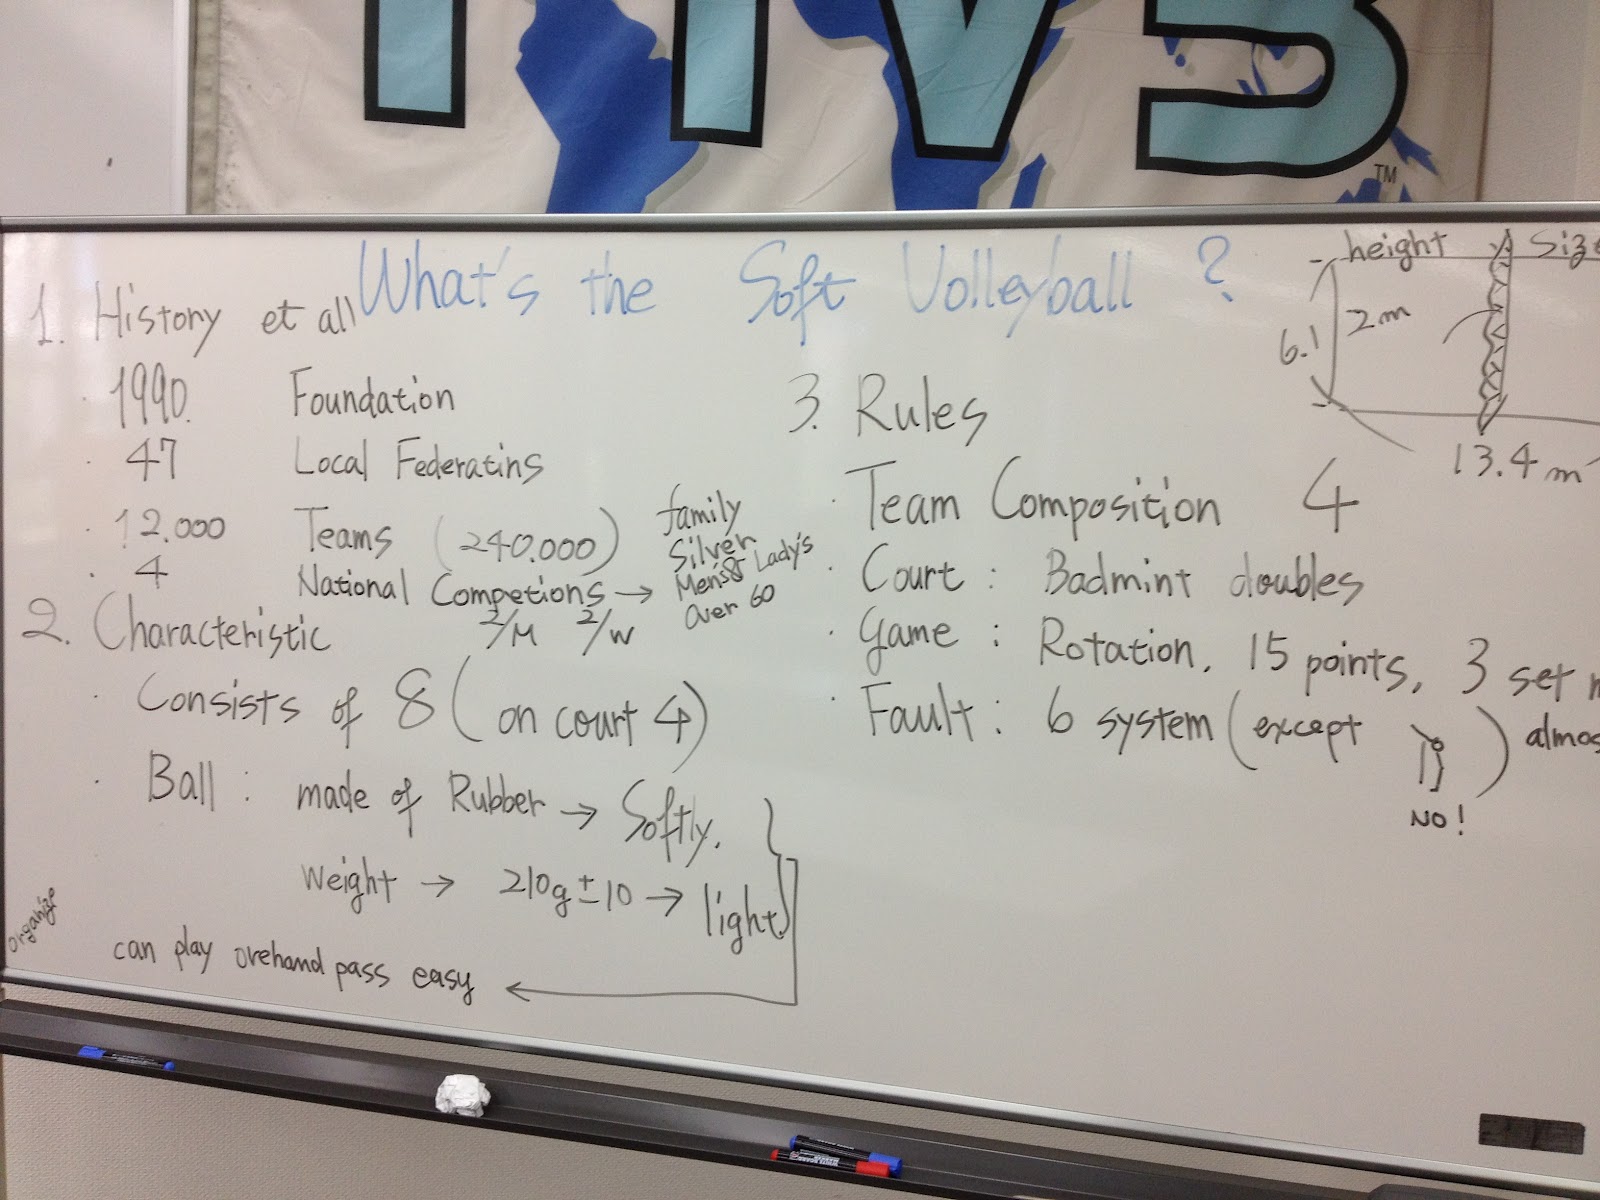 TM
What's the Soft Volleyball ?
1. History et all
· 1990. Foundation
· 47 Local Federatins
· 12.000 Teams (240.000)
· 4 National Competions →
family
Silver
Men's & Lady's
Over 60
2/M 2/W
2. Characteristic
· Consists of 8 (on court 4)
· Ball : made of Rubber → Softly.
Weight → 210g ± 10 → light
can play orehand pass easy ←
organize
3. Rules
· Team Composition 4
· Court : Badmint doubles
· Game : Rotation, 15 points, 3 set
· Fault : 6 system (except )
NO!
height
2m
6.1
13.4 m